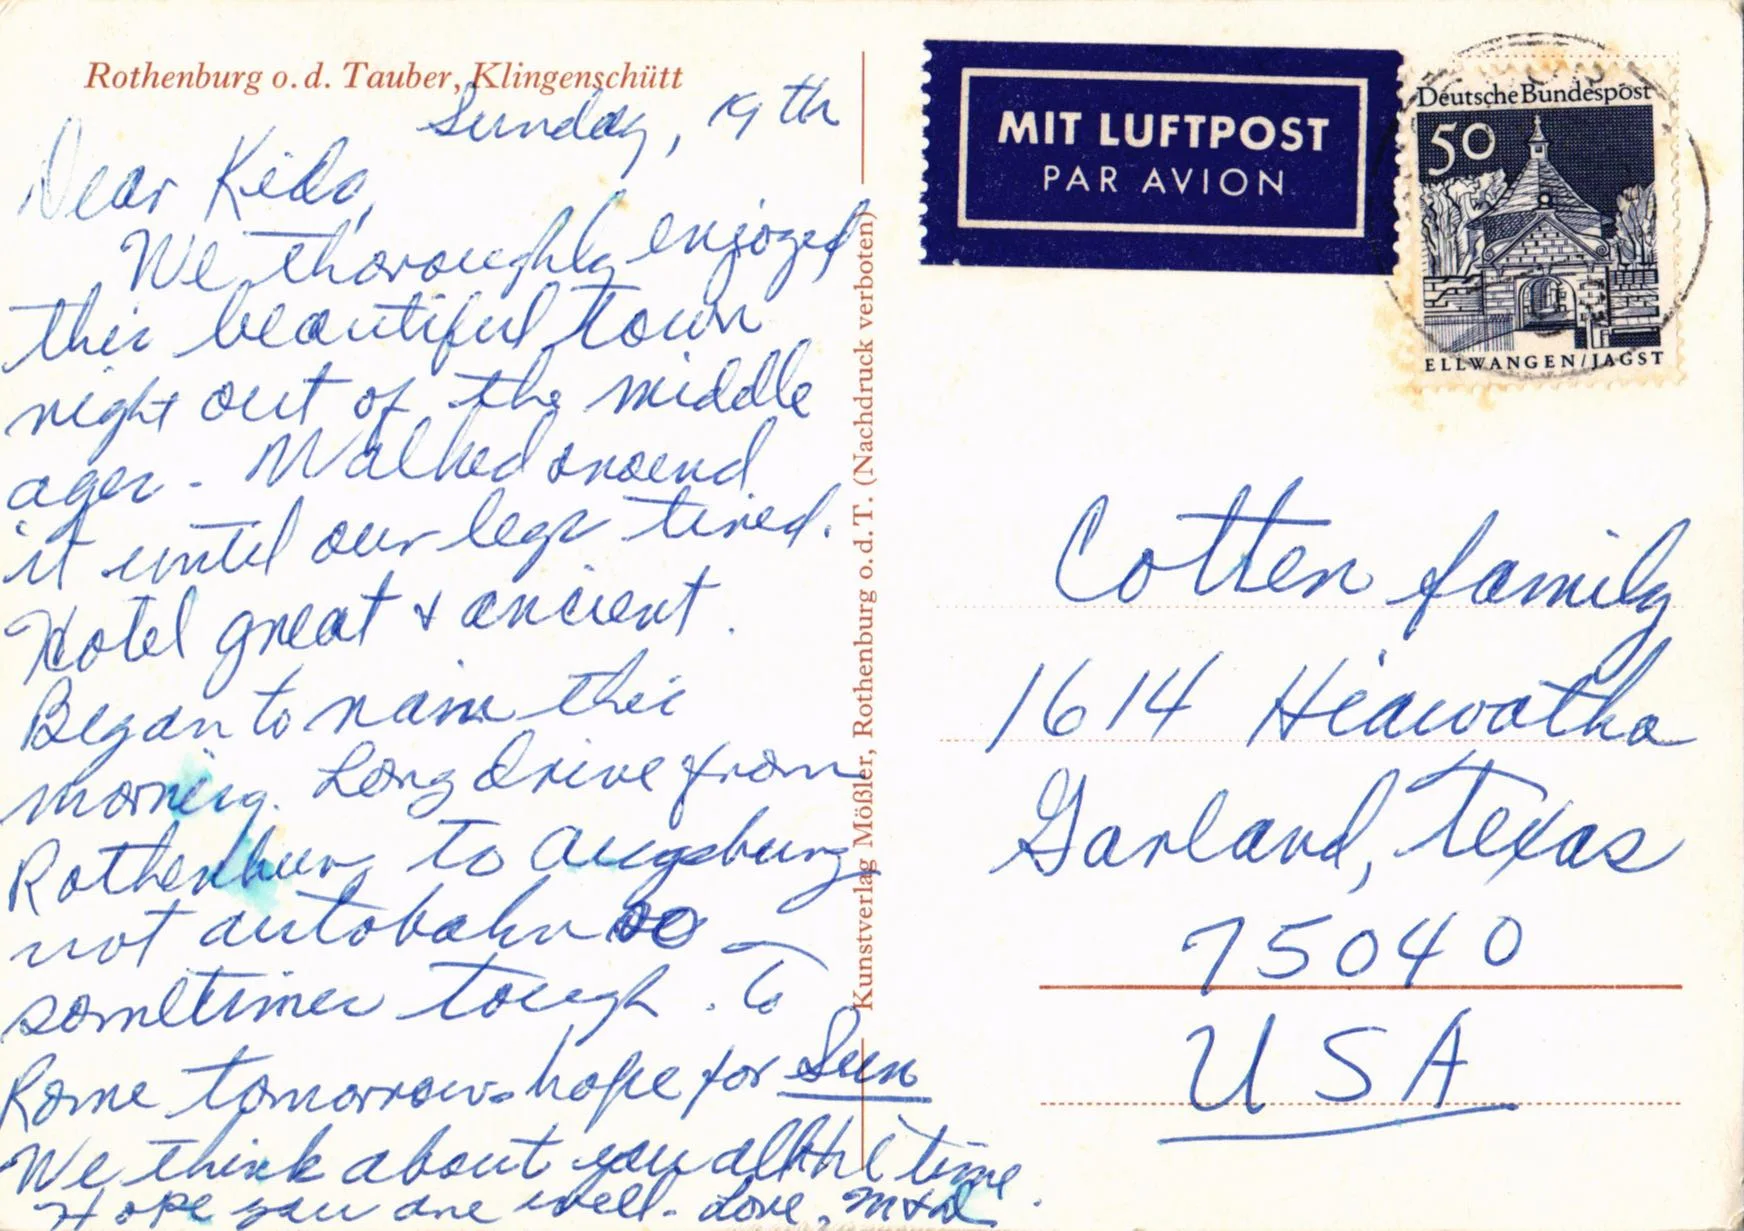 Rothenburg o. d. Tauber, Klingenschütt
Sunday, 19th
Dear Kids,
We thoroughly enjoyed
this beautiful town
right out of the middle
ages. Walked around
it until our legs tired.
Hotel great & ancient.
Began to rain this
morning. Long drive from
Rothenburg to Augsburg
not autobahn so
sometimes tough. To
Rome tomorrow - hope for Sun
We think about you all the time.
Hope you are well - Love, M & D
Kunstverlag Mößler, Rothenburg o. d. T. (Nachdruck verboten)
MIT LUFTPOST
PAR AVION
Deutsche Bundespost
50
ELLWANGEN/JAGST
Cotten family
1614 Hiawatha
Garland, Texas
75040
USA